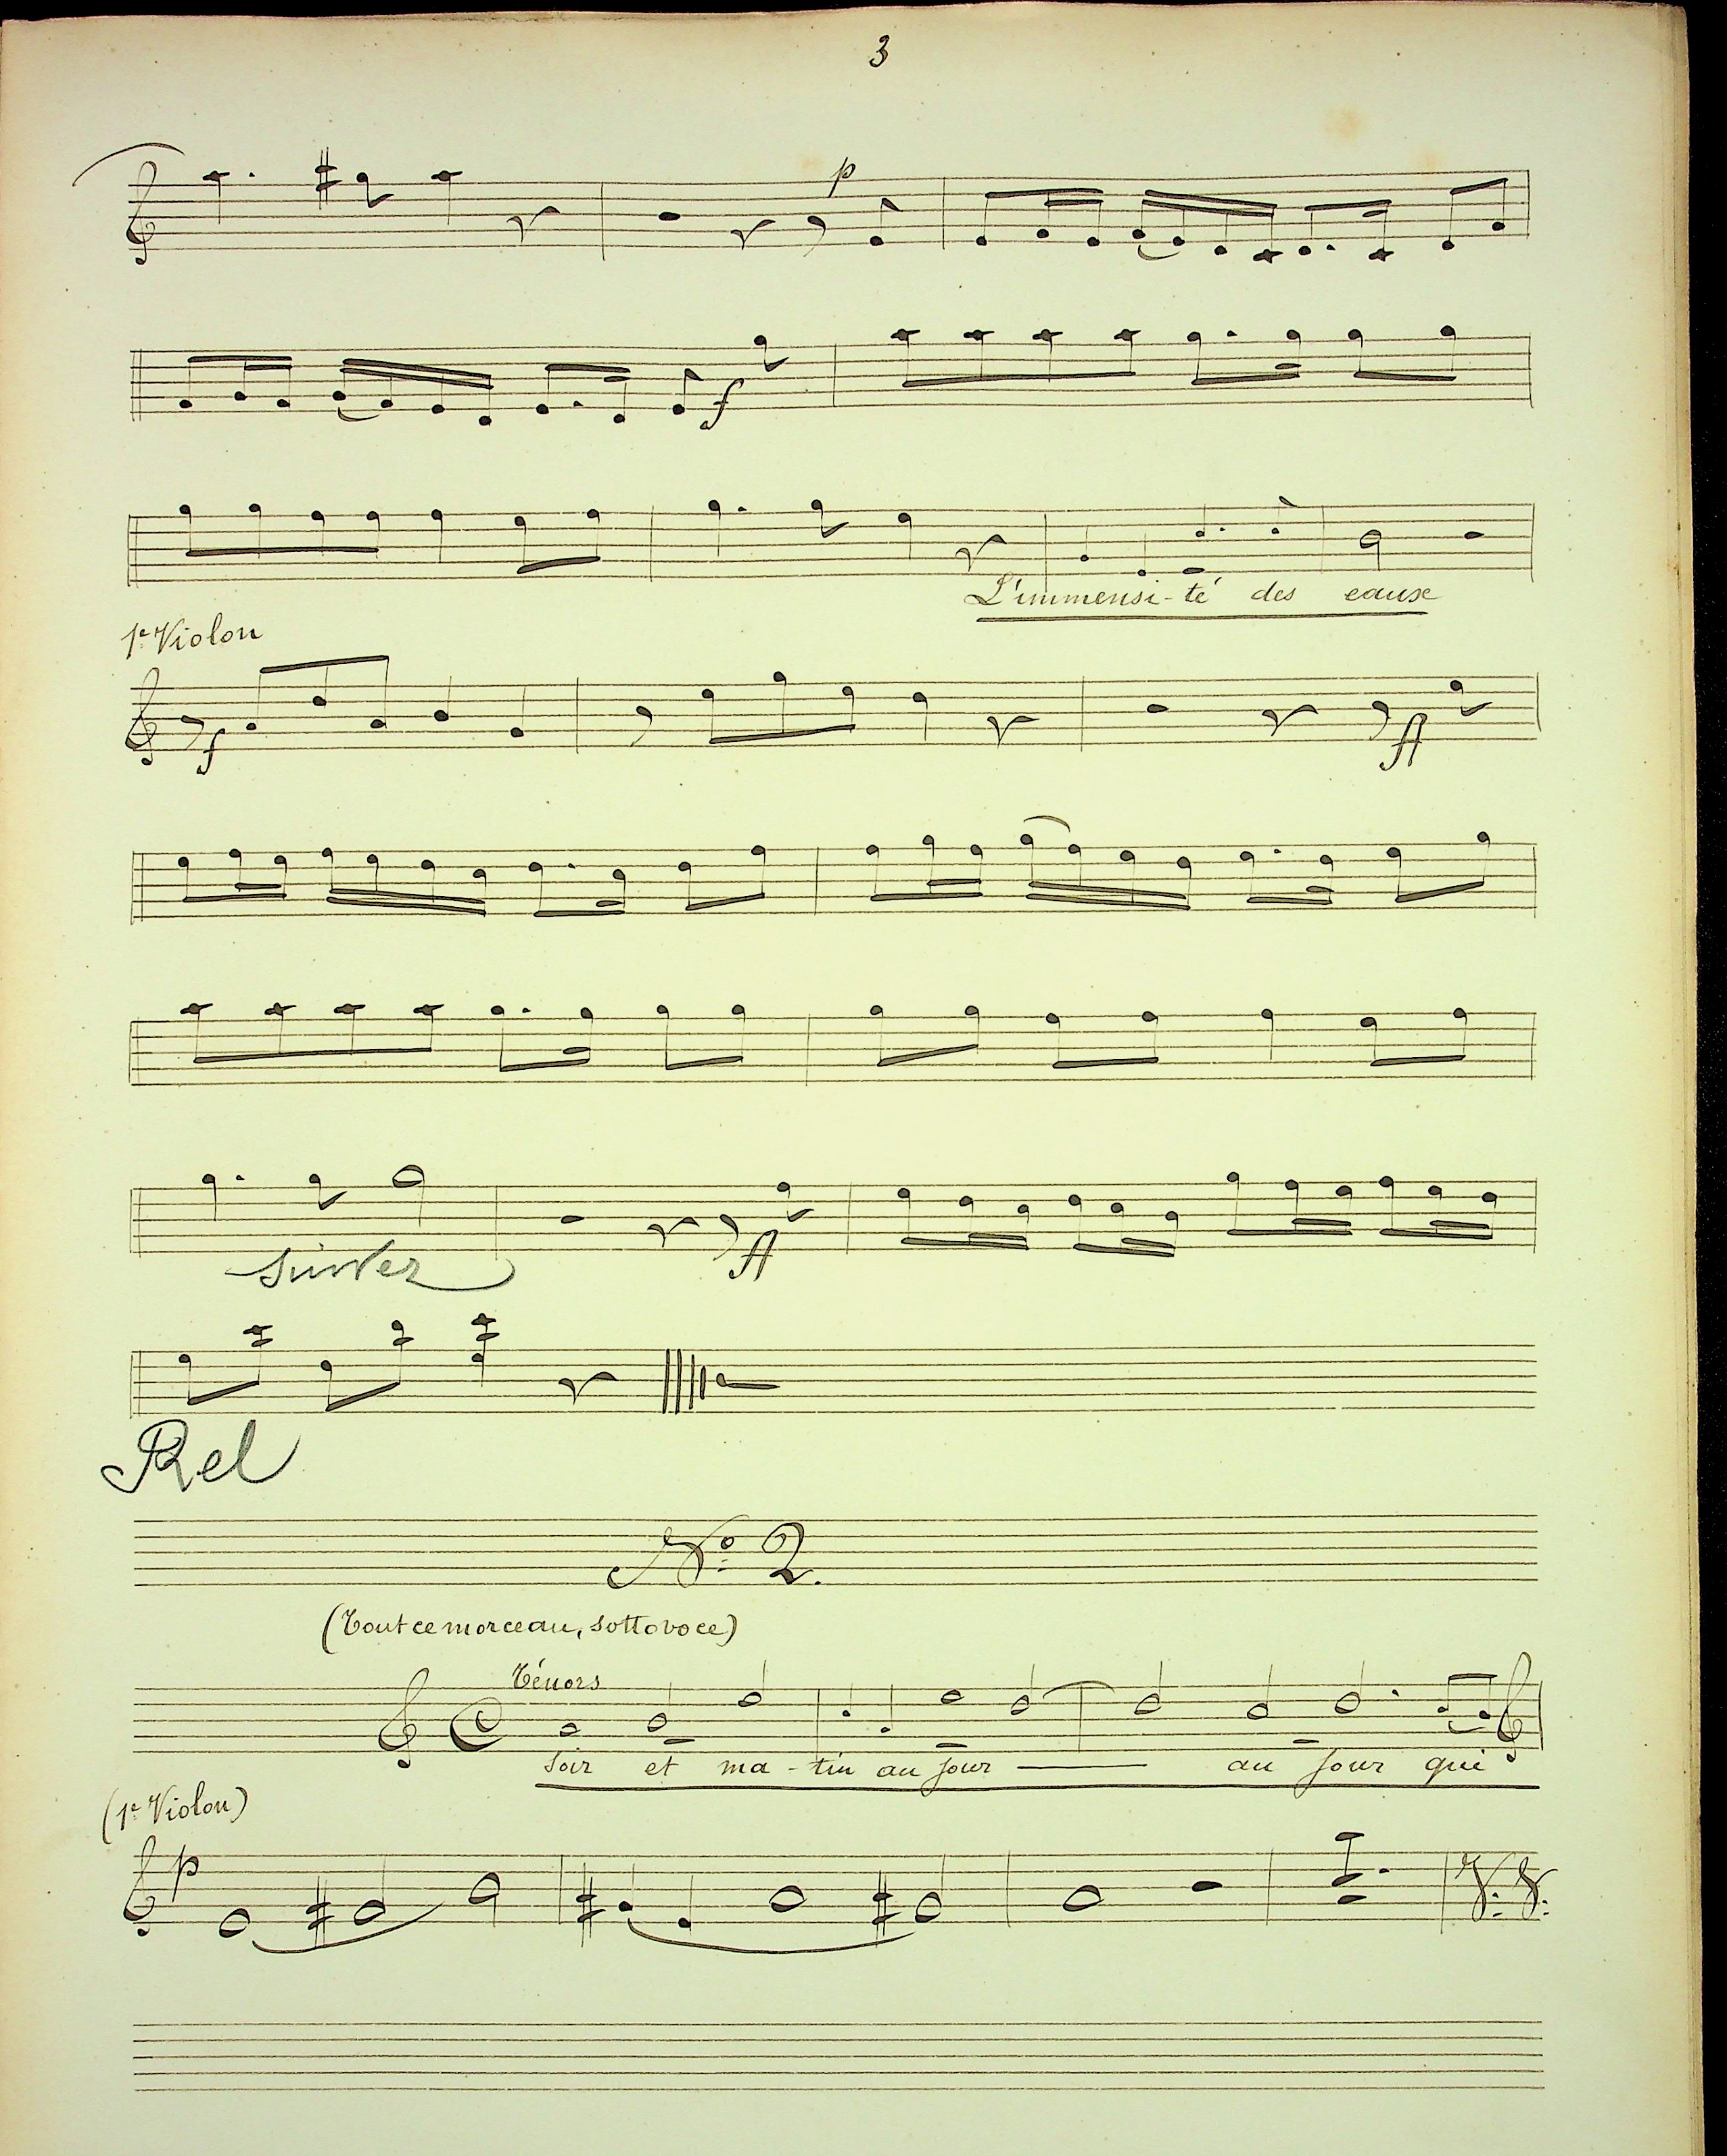 3
p
f
L'immensi-té des eaux
1er Violon
f
ff
suivez
ff
Rel
No 2.
(Tout ce morceau, sotto voce)
Ténors
soir et ma-tin au jour — au jour qui
(1er Violon)
p